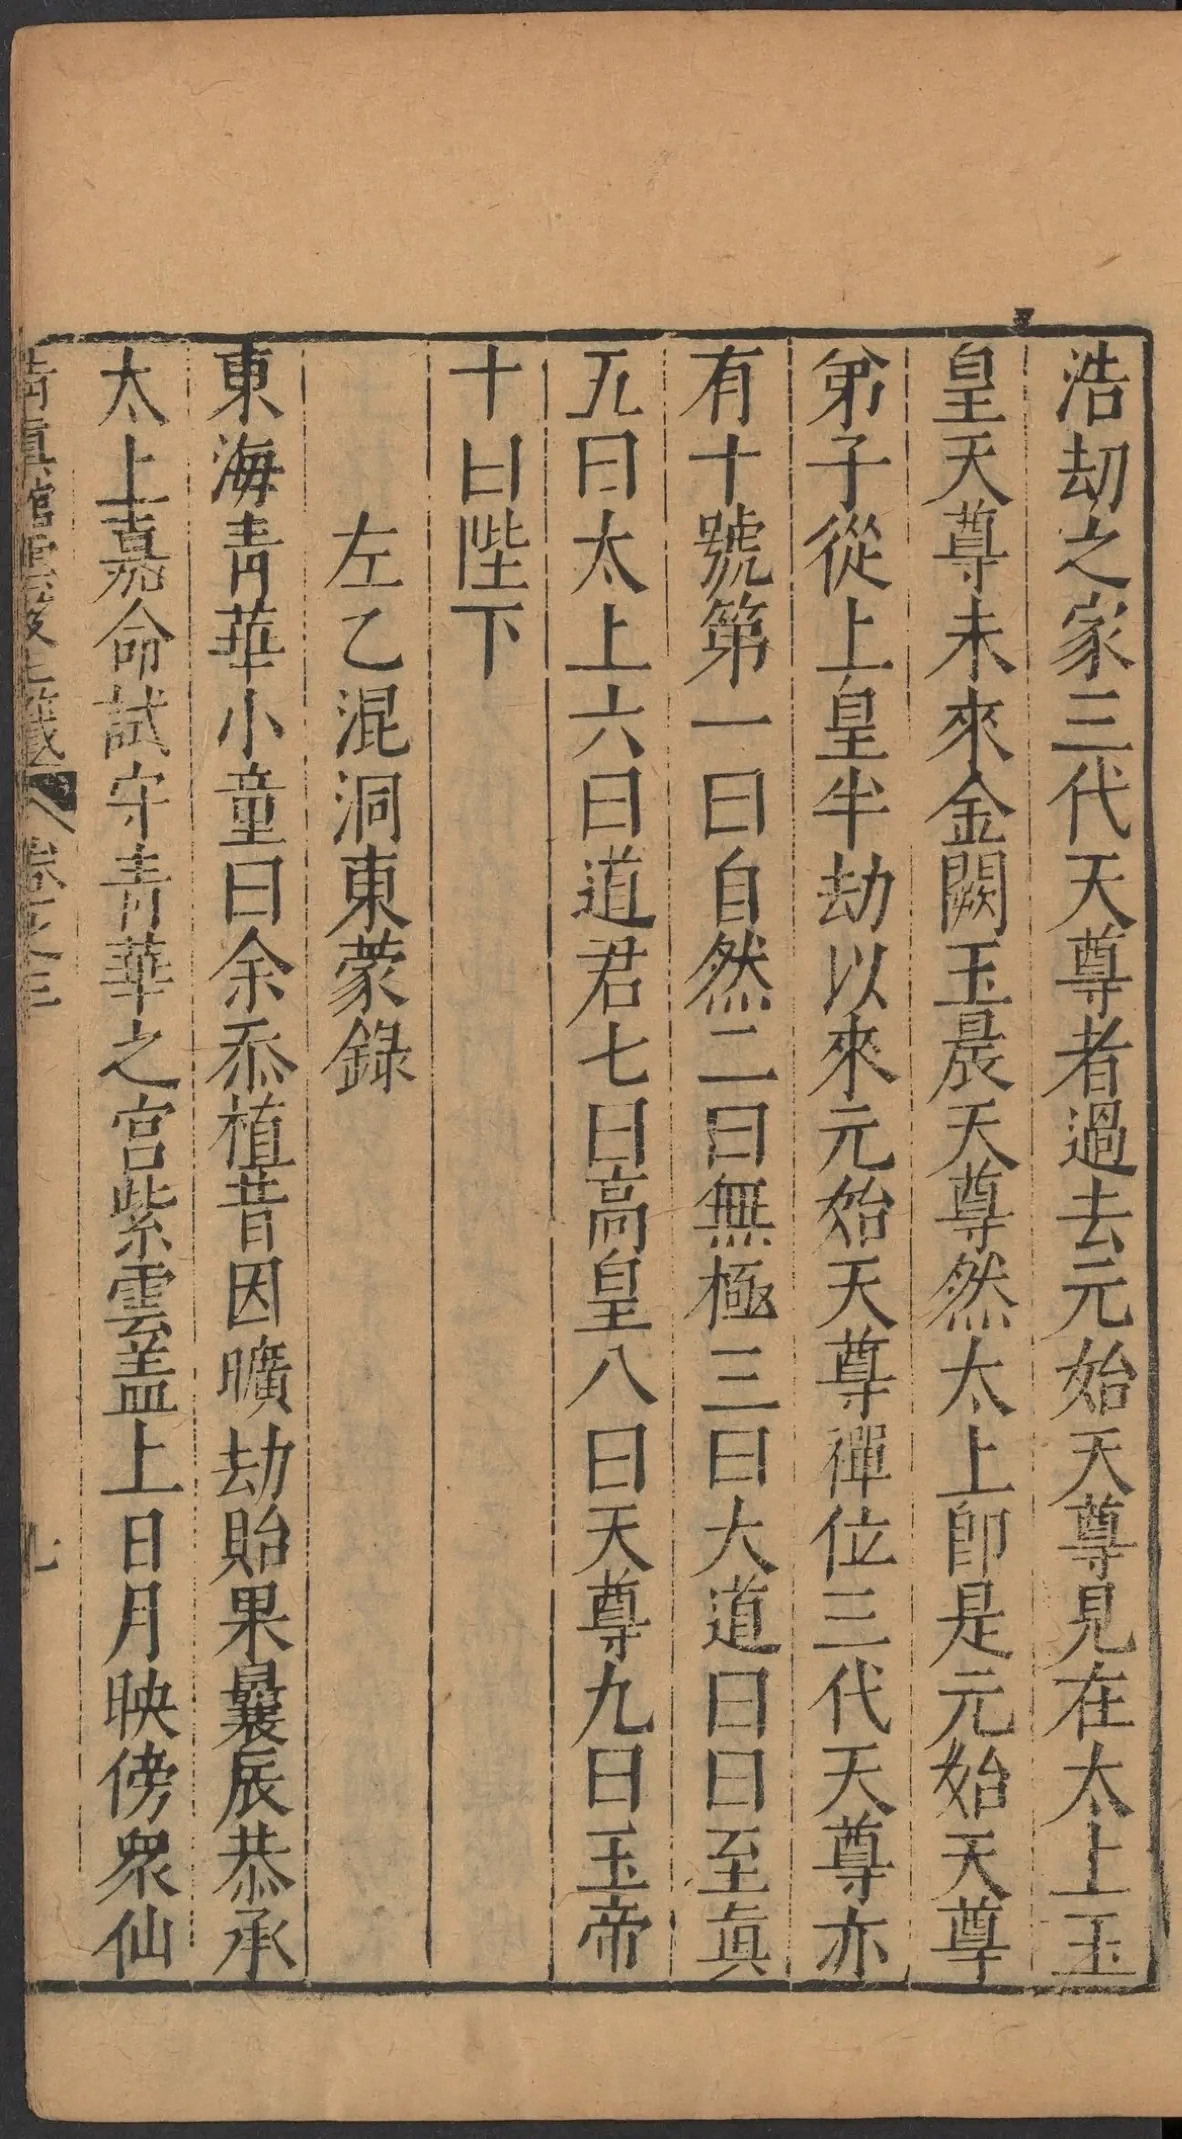 浩刧之家三代天尊者過去元始天尊見在太上玉
皇天尊未來金闕玉晨天尊然太上卽是元始天尊
弟子從上皇半劫以來元始天尊禪位三代天尊亦
有十號第一曰自然二曰無極三曰大道曰曰至眞
五曰太上六曰道君七曰高皇八曰天尊九曰玉帝
十曰陛下
左乙混洞東蒙錄
東海青華小童曰余忝植昔因曠劫貽果曩辰恭承
太上嘉命試守青華之宮紫雲蓋上日月映傍眾仙
卷之三